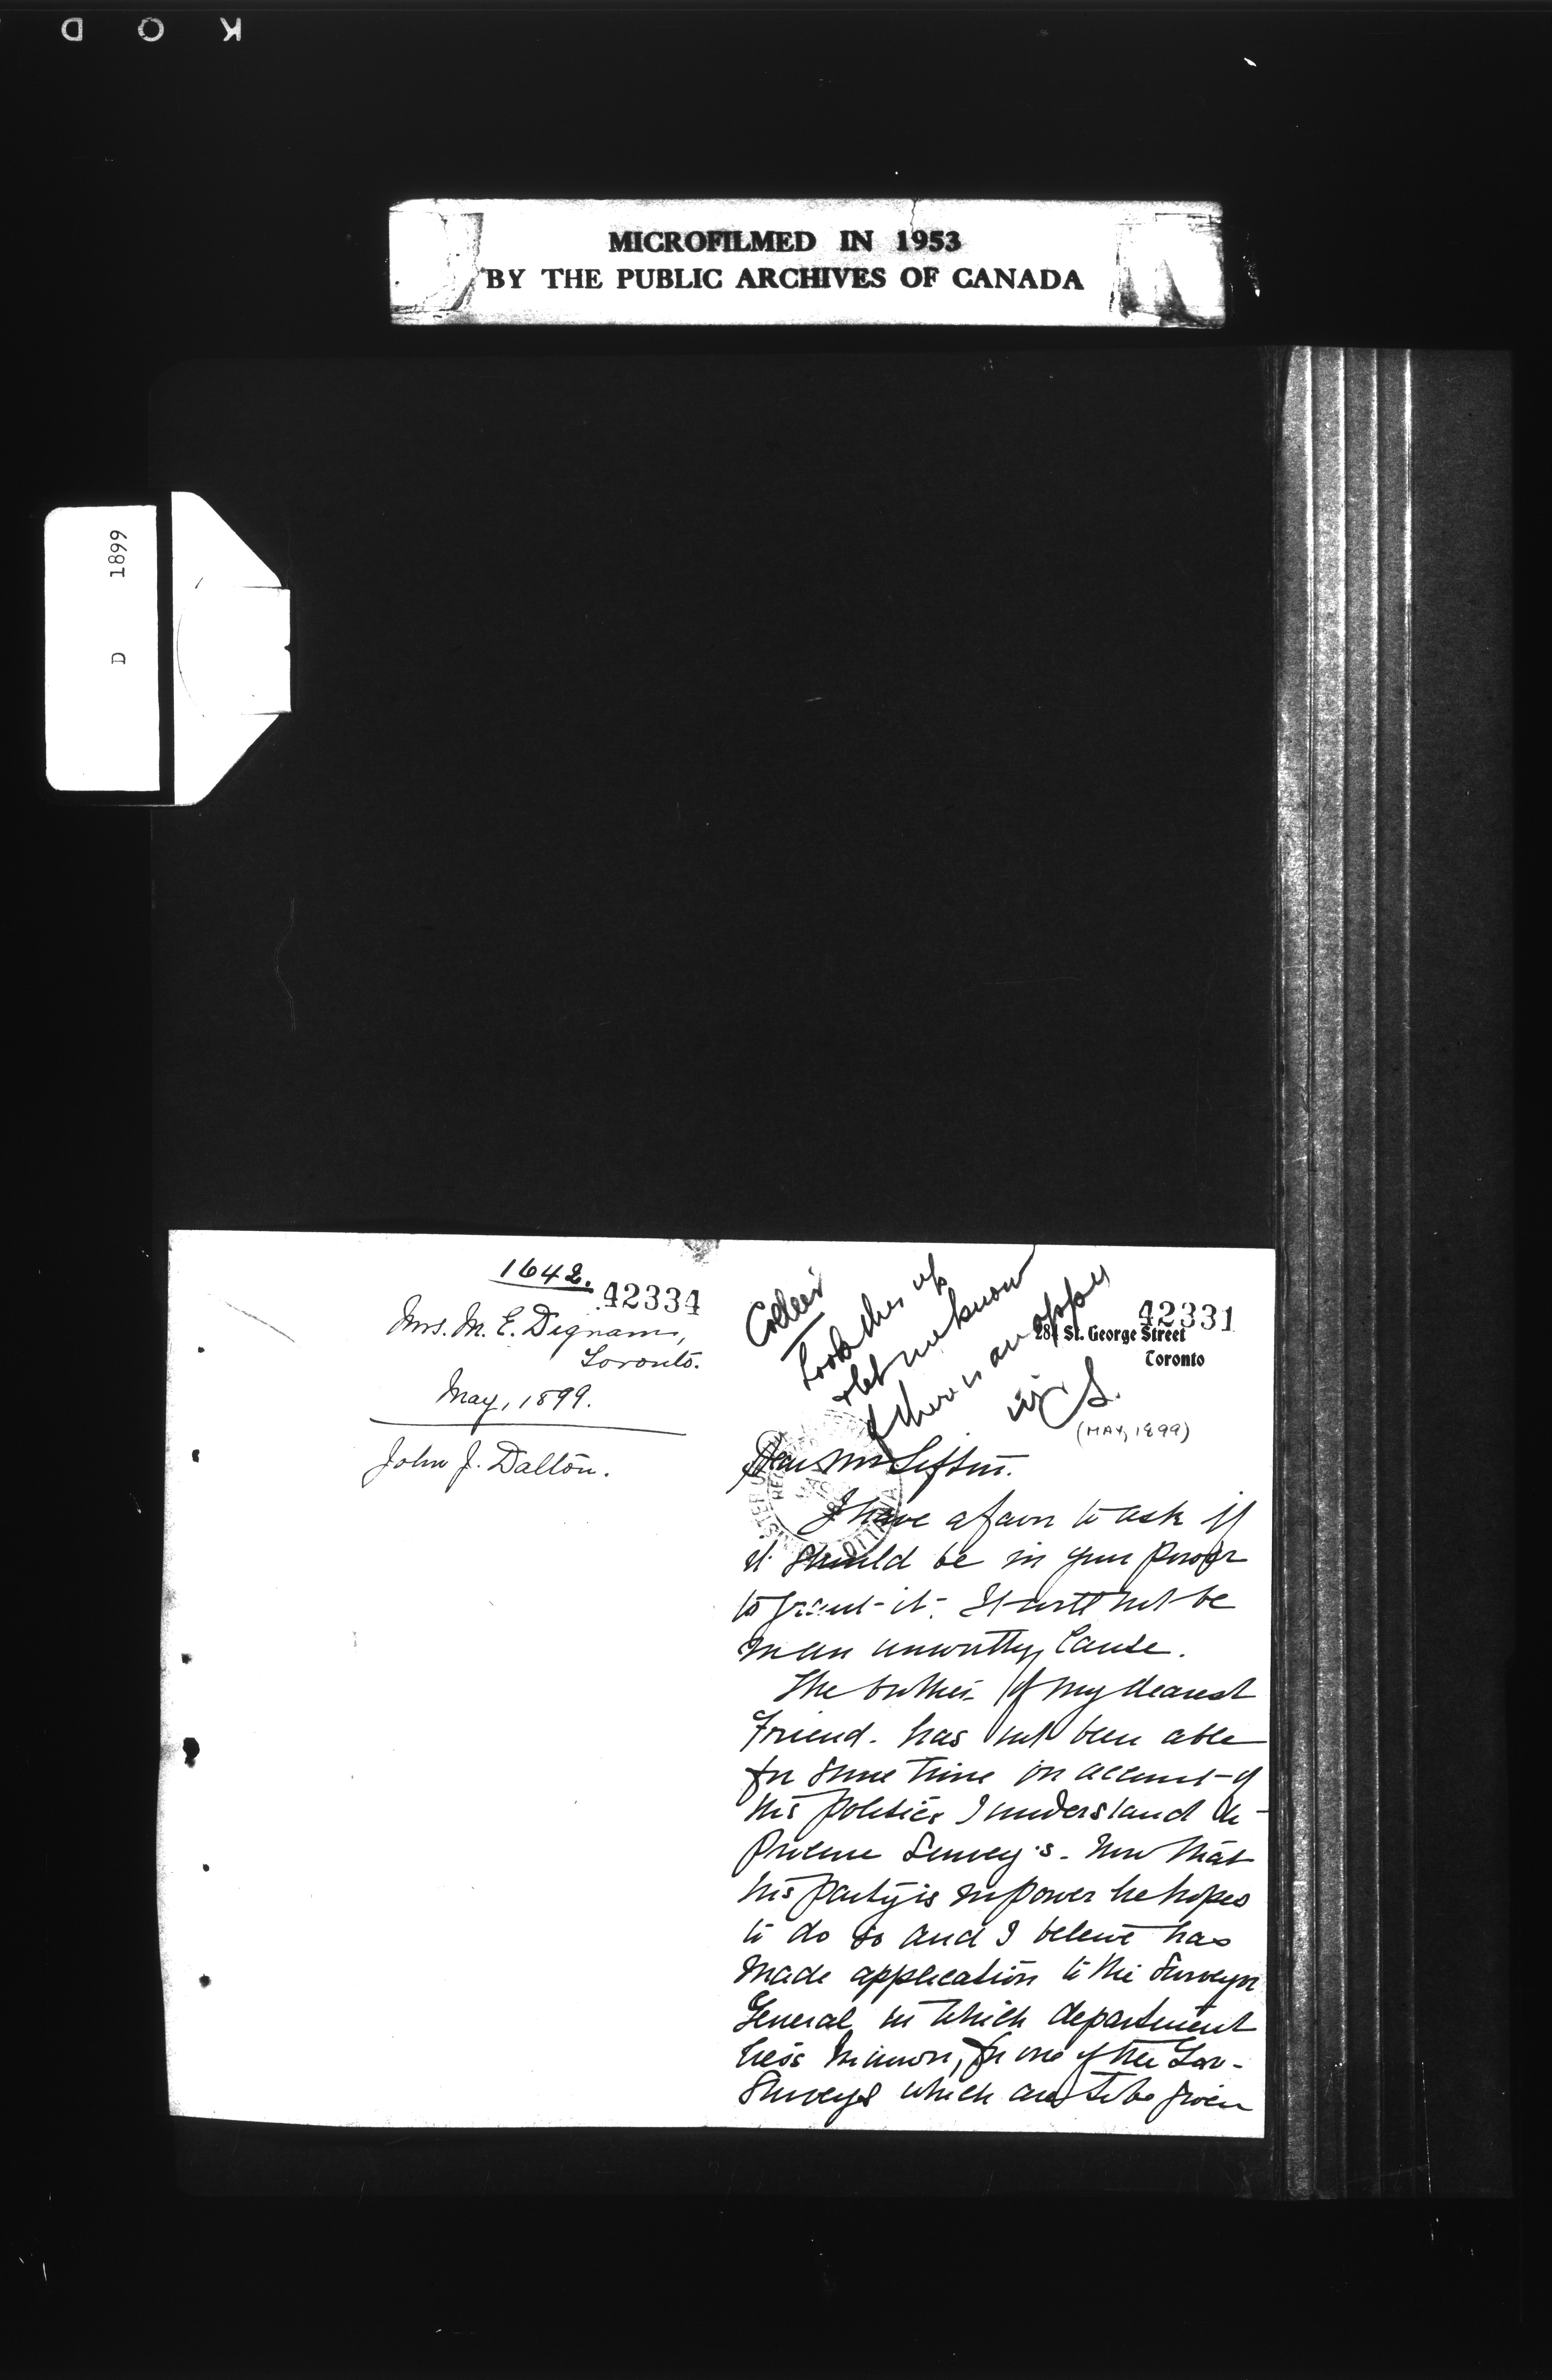 K O D
MICROFILMED IN 1953
BY THE PUBLIC ARCHIVES OF CANADA
D 1899
1642.
42334
Mrs. M. E. Dignam,
Toronto.
May, 1899.
John J. Dalton.
Look this up
& let me know
if there is an
S.
42331
284 St. George Street
Toronto
(MAY, 1899)
Dear Mr Sifton.
I have a favor to ask if
it should be in your power
to grant it. It will not be
in an unworthy cause.
The brother of my dearest
Friend. has not been able
for some time on account of
his politics I understand to
procure Survey's. Now that
his party is in power he hopes
to do so and I beleive has
made application to the Surveyor
General in which department
he is known, for one of the
Surveys which are to be given